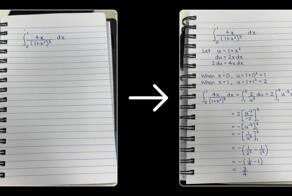 ∫₀¹ 4x/(1+x²)³ dx
∫₀¹ 4x/(1+x²)³ dx
Let u = 1+x²
du = 2x dx
2du = 4x dx
When x=0, u=1+0²=1
When x=1, u=1+1²=2
∫₀¹ 4x/(1+x²)³ dx = ∫₁² 2/u³ du = 2∫₁² u⁻³
= 2[u⁻²/-2]₁²
= -[u⁻²]₁²
= -[1/u²]₁²
= -(1/2² - 1/1²)
= -(1/4 - 1)
= 3/4